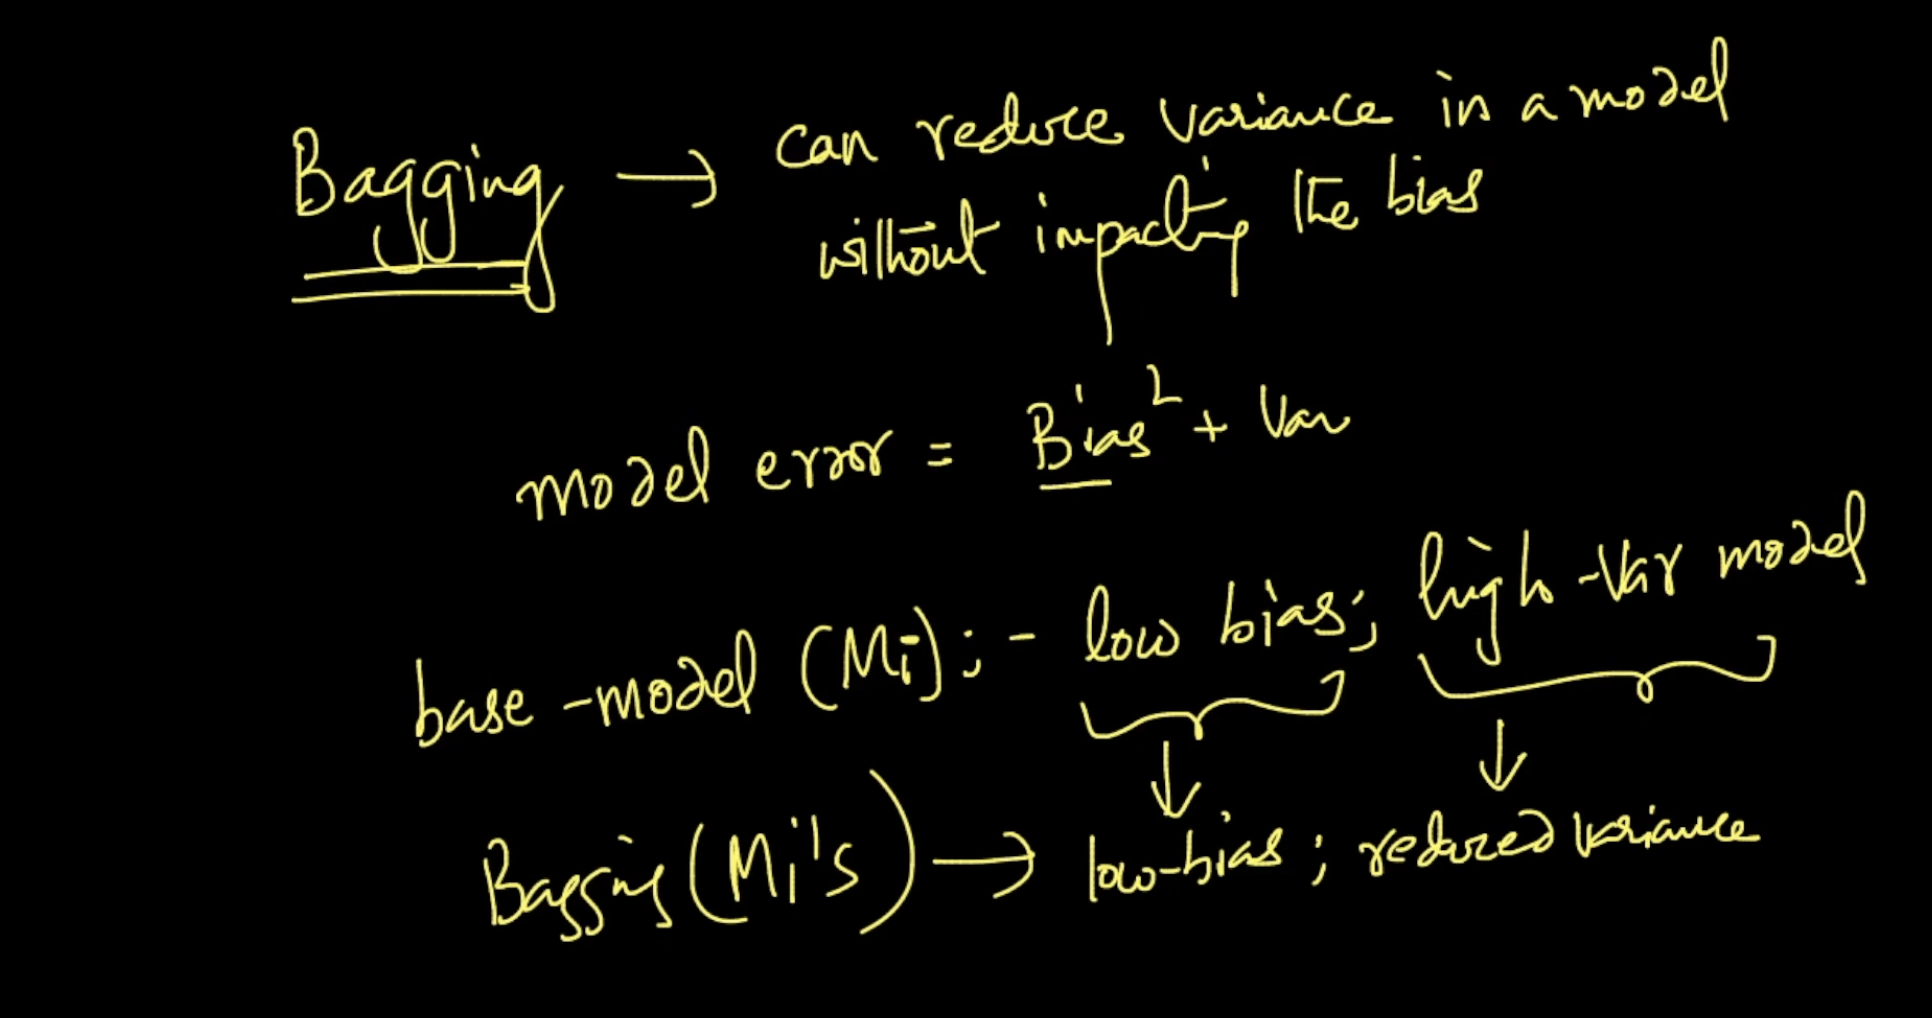 Bagging → can reduce variance in a model
without impacting the bias
model error = Bias² + Var
base-model (Mi) :- low bias; high-Var model
Bagging (Mi's) → low-bias ; reduced variance